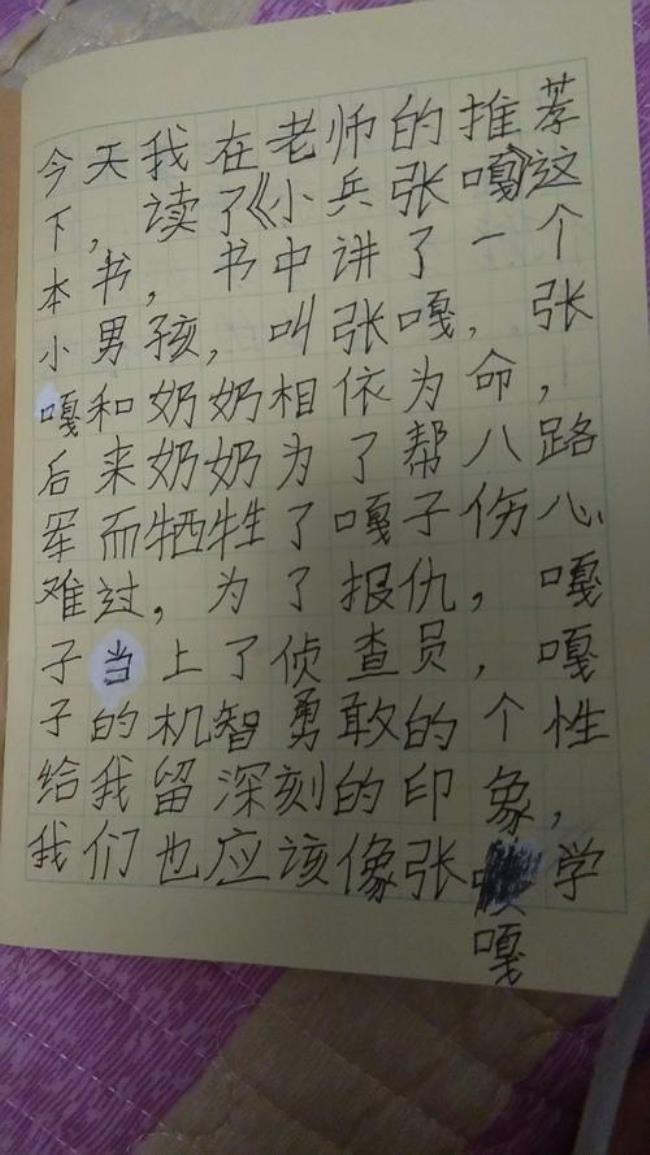 今天我在老师的推荐
下，读了《小兵张嘎》这
本书，书中讲了一个
小男孩，叫张嘎，张
嘎和奶奶相依为命，
后来奶奶为了帮八路
军而牺牲了嘎子伤心
难过，为了报仇，嘎
子当上了侦查员，嘎
子的机智勇敢的个性
给我留深刻的印象，
我们也应该像张学
嘎